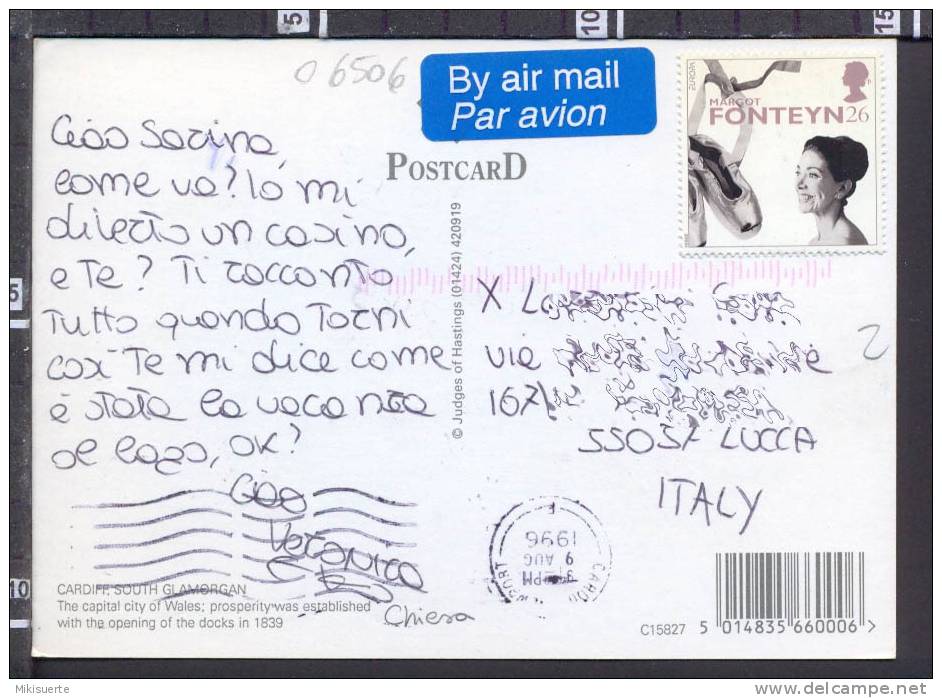 5
10
15
06506
By air mail
Par avion
EUROPA
MARGOT
FONTEYN 26
Ciao Sarina,
POSTCARD
come va? Io mi
diverto un casino,
e te? Ti racconto
tutto quando torni
così te mi dice come
è stata la vacanza
al lago, ok?
Ciao
Veronica
Chiesa
© Judges of Hastings (01424) 420919
X
via
2
55051 LUCCA
ITALY
CARDIFF
NEWPORT
PM
9 AUG
1996
CARDIFF, SOUTH GLAMORGAN
The capital city of Wales; prosperity was established
with the opening of the docks in 1839
C15827 5 014835 660006 >
5
10
Website: Mikisuerte
delcampe.net